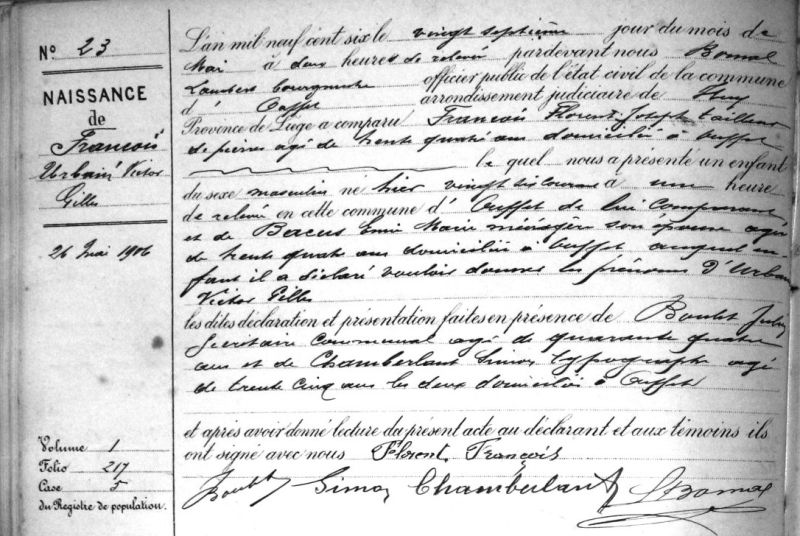 N° 23
NAISSANCE
de
François
Urbain Victor
Gilles
26 Mai 1906
Volume 1
Folio 217
Case 5
du Registre de population.
L'an mil neuf cent six le vingt septième jour du mois de
Mai à deux heures de relevée pardevant nous Bomal
Lambert bourgmestre officier public de l'état civil de la commune
d' Ouffet arrondissement judiciaire de Huy
Province de Liège a comparu François Florent Joseph tailleur
de pierres agé de trente quatre ans domicilié à Ouffet
le quel nous a présenté un enfant
du sexe masculin né hier vingt six courant à une heure
de relevée en cette commune d' Ouffet de lui comparant
et de Bacus Marie ménagère son épouse agée
de trente quatre ans domiciliée à Ouffet auquel en-
fant il a déclaré vouloir donner les prénoms d'Urbain
Victor Gilles
les dites déclaration et présentation faites en présence de Boulet Jules
Secrétaire communal agé de quarante quatre
ans et de Chamberlant Simon typographe agé
de trente cinq ans les deux domiciliés à Ouffet
et après avoir donné lecture du présent acte au déclarant et aux témoins ils
ont signé avec nous Florent François
JBoulet Simon Chamberlant LBomal